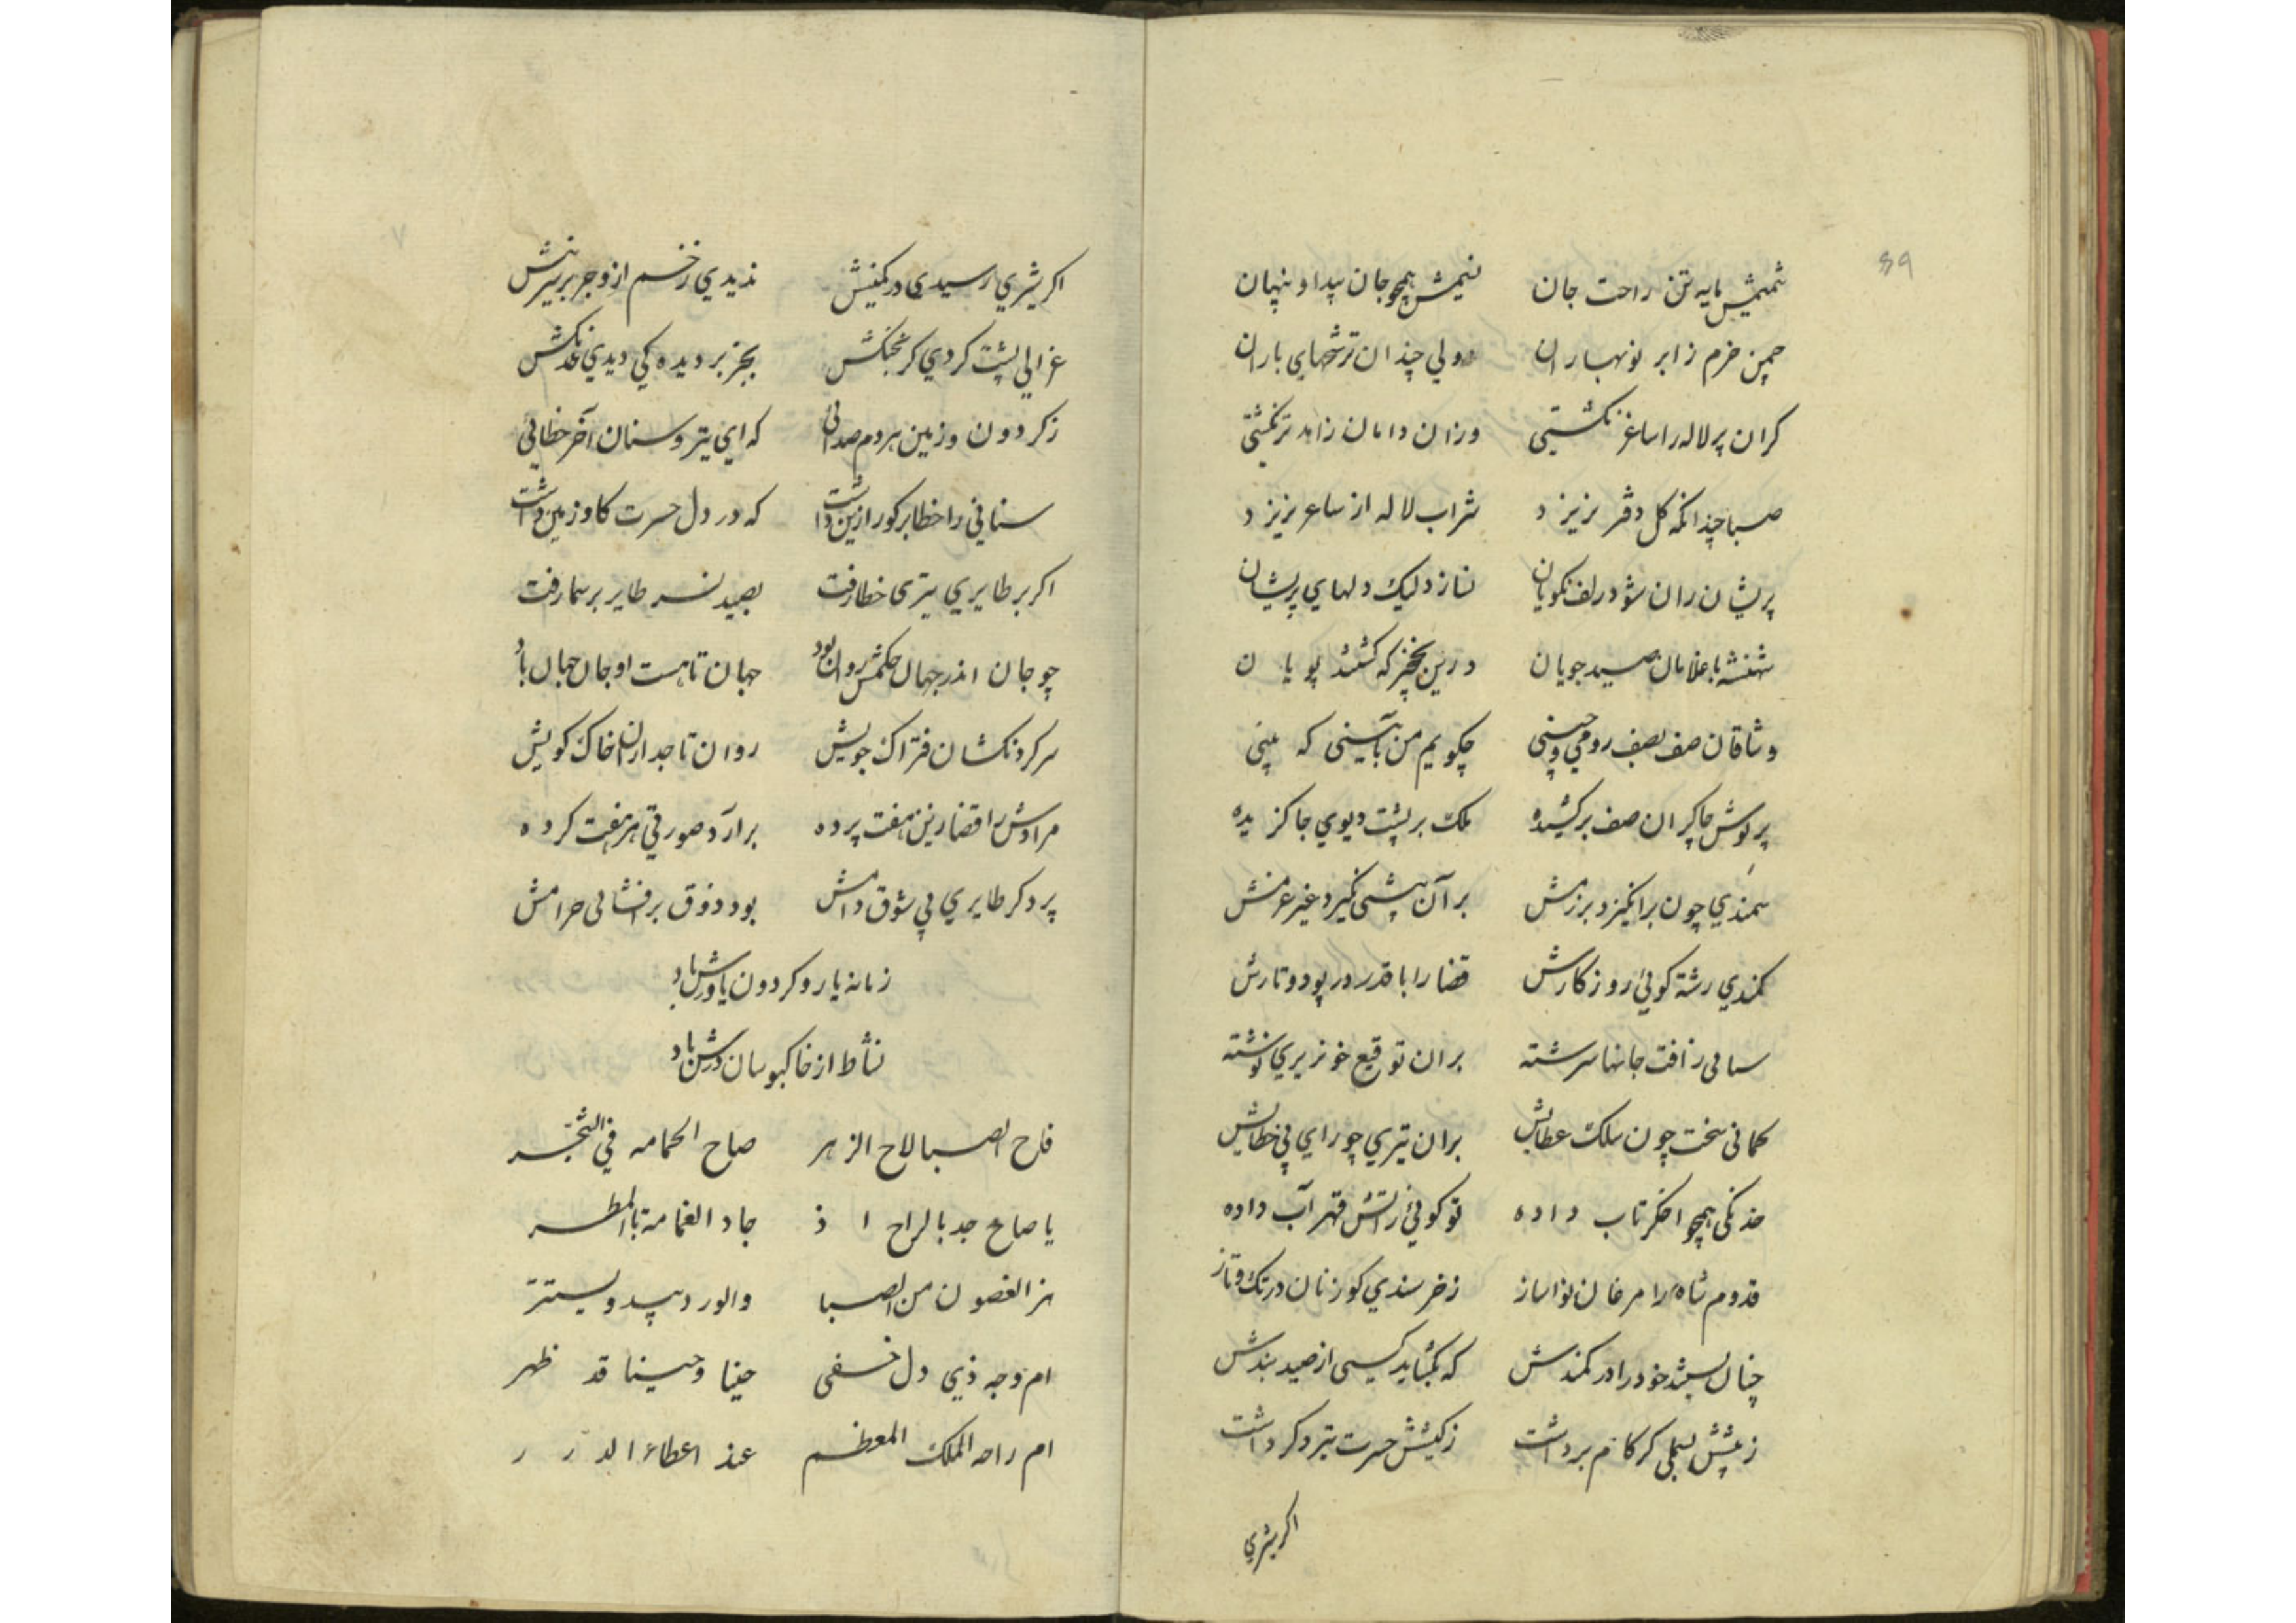 89
شمیمش مایه تن راحت جان نسیمش همچو جان پیدا و پنهان
چمن خرم ز ابر نوبهاران ولی چندان ترشحهای باران
کزان پر لاله را ساغر نکشتی وزان دامان زاهد تر نکشتی
صبا چندانکه کل دفتر نریزد شراب لاله از ساغر نریزد
پریشان زان شود زلف نکویان نسازد لیک دلهای پریشان
شهنشه با غلامان صید جویان درین نخچیر که کشتند پویان
وثاقان صف بصف رومی و چینی چکویم من بآیینی که بینی
پریوش چاکران صف برکشیده ملک بر پشت دیوی جا کزیده
سمندی چون برانکیزد برزمش بر آن پیشی نکیرد غیر عزمش
کمندی رشته کوئی روزکارش قضا را با قدر در پود و تارش
سنانی ز آفت جانها سرشته بران توقیع خونریزی نوشته
کمانی سخت چون سلک عطایش بران تیری چو رای بی خطایش
خدنکی همچو اخکر تاب داده تو کوئی ز آتش قهر آب داده
قدوم شاه را مرغان نواساز ز خرسندی کوزنان در تک و تاز
چنان بسته خود را در کمندش که نکشاید کسی از صید بندش
ز پیشش بسملی کر کام برداشت ز کیشش حسرت تیر دکر داشت
اکر شیری
اکر شیری رسیدی در کمینش ندیدی زخم ازو جز بر سرینش
غزالی پشت کردی کر بجنکش بجز بر دیده کی دیدی خدنکش
ز کردون و زمین هر دم صدائی که ای تیر و سنان آخر خطائی
سنانی را خطا بر کور ازین داشت که در دل حسرت کاو زمین داشت
اکر بر طایری تیری خطا رفت بصید نسر طایر بر سما رفت
چو جان اندر جهان حکمش روان بود جهان تا هست او جان جهان باد
سر کردنکشان فتراک جویش روان تاجداران خاک کویش
مرادش را قضا زین هفت پرده برآرد صورتی هر هفت کرده
پرد کر طایری بی شوق دامش بود ذوق پرافشانی حرامش
زمانه یار و کردون یاورش باد
نشاط از خاکبوسان درش باد
فاح الصبا لاح الزهر صاح الحمامه فی الشجر
یا صاح جد بالراح اذ جاد الغمامة بالمطر
هز الغصون من الصبا والورد یبدو یستتر
ام وجه ذی دل خفی حینا وحینا قد ظهر
ام راحه الملک المعظم عند اعطاء الدرر